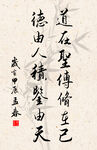 道在聖傳脩在己
德由人積鑒由天
歲在甲辰孟春